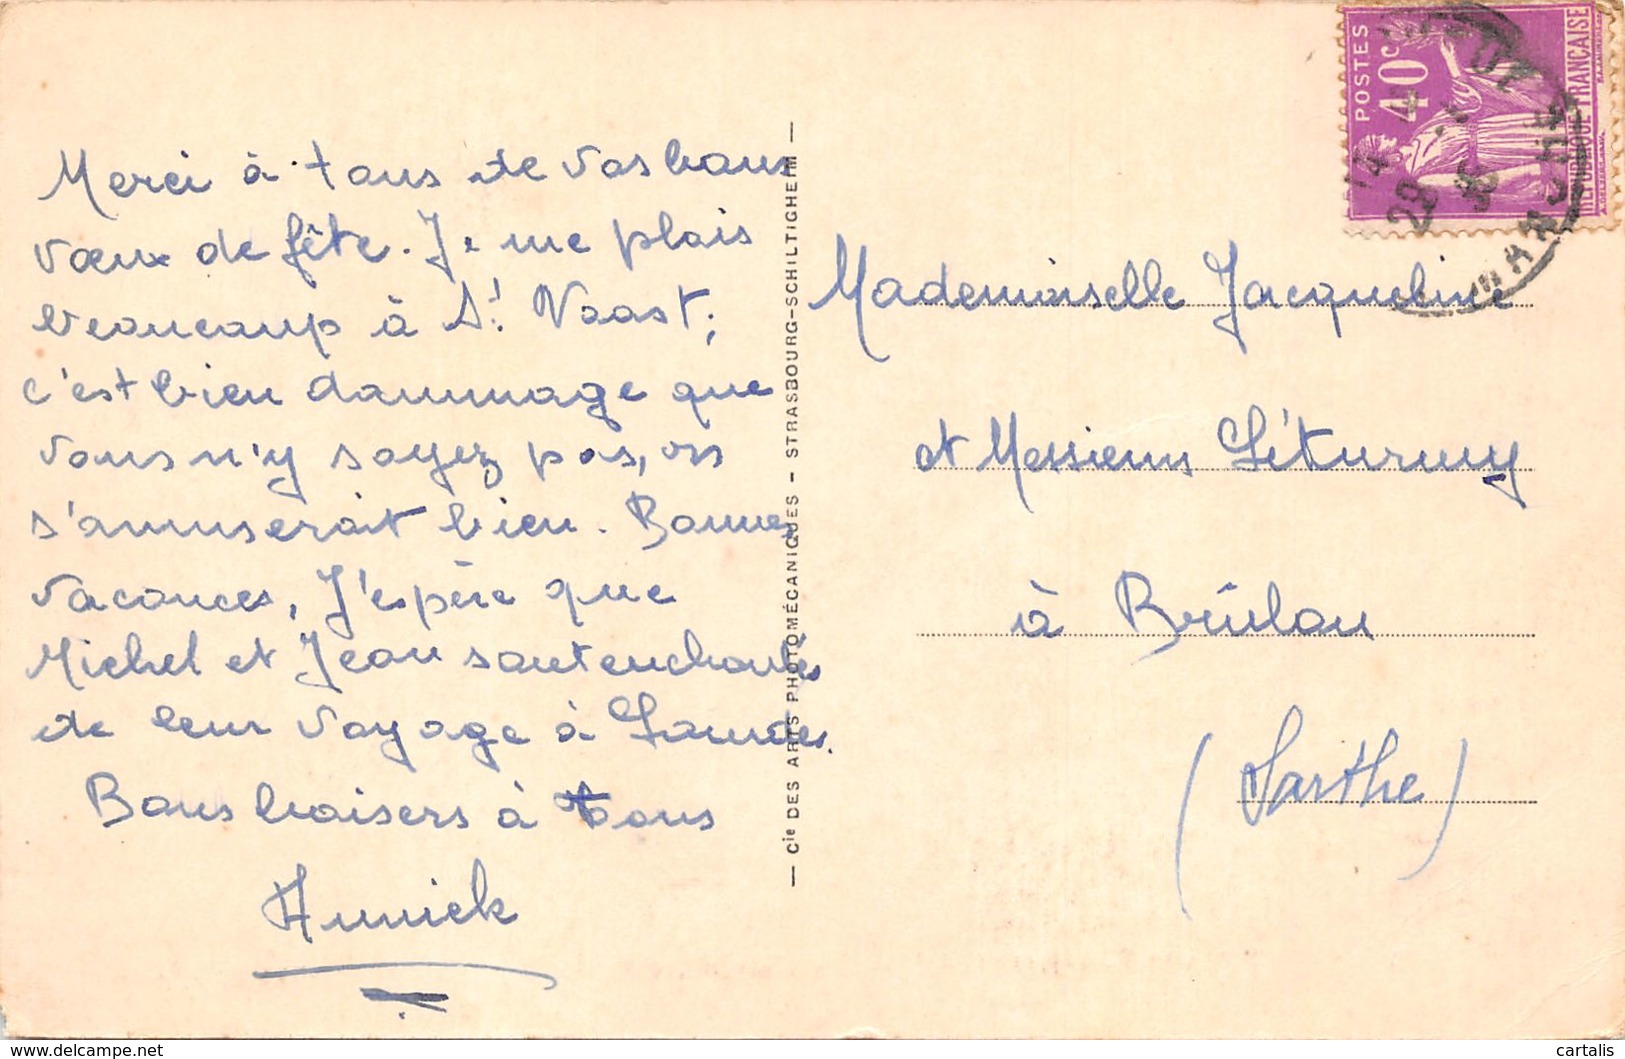 Merci à tous de vos bons
vœux de fête. Je me plais
beaucoup à St Vaast;
c'est bien dommage que
vous n'y soyez pas, on
s'amuserait bien. Bonnes
vacances, J'espère que
Michel et Jean sont enchantés
de leur voyage à Londres.
Bons baisers à tous
Annick
— Cie DES ARTS PHOTOMÉCANIQUES - STRASBOURG-SCHILTIGHEIM —
POSTES
40c
REPUBLIQUE FRANÇAISE
14
28
MANCHE
Mademoiselle Jacqueline
et Messieurs Léturmy
à Brûlon
(Sarthe)
http://www.delcampe.net
cartalis